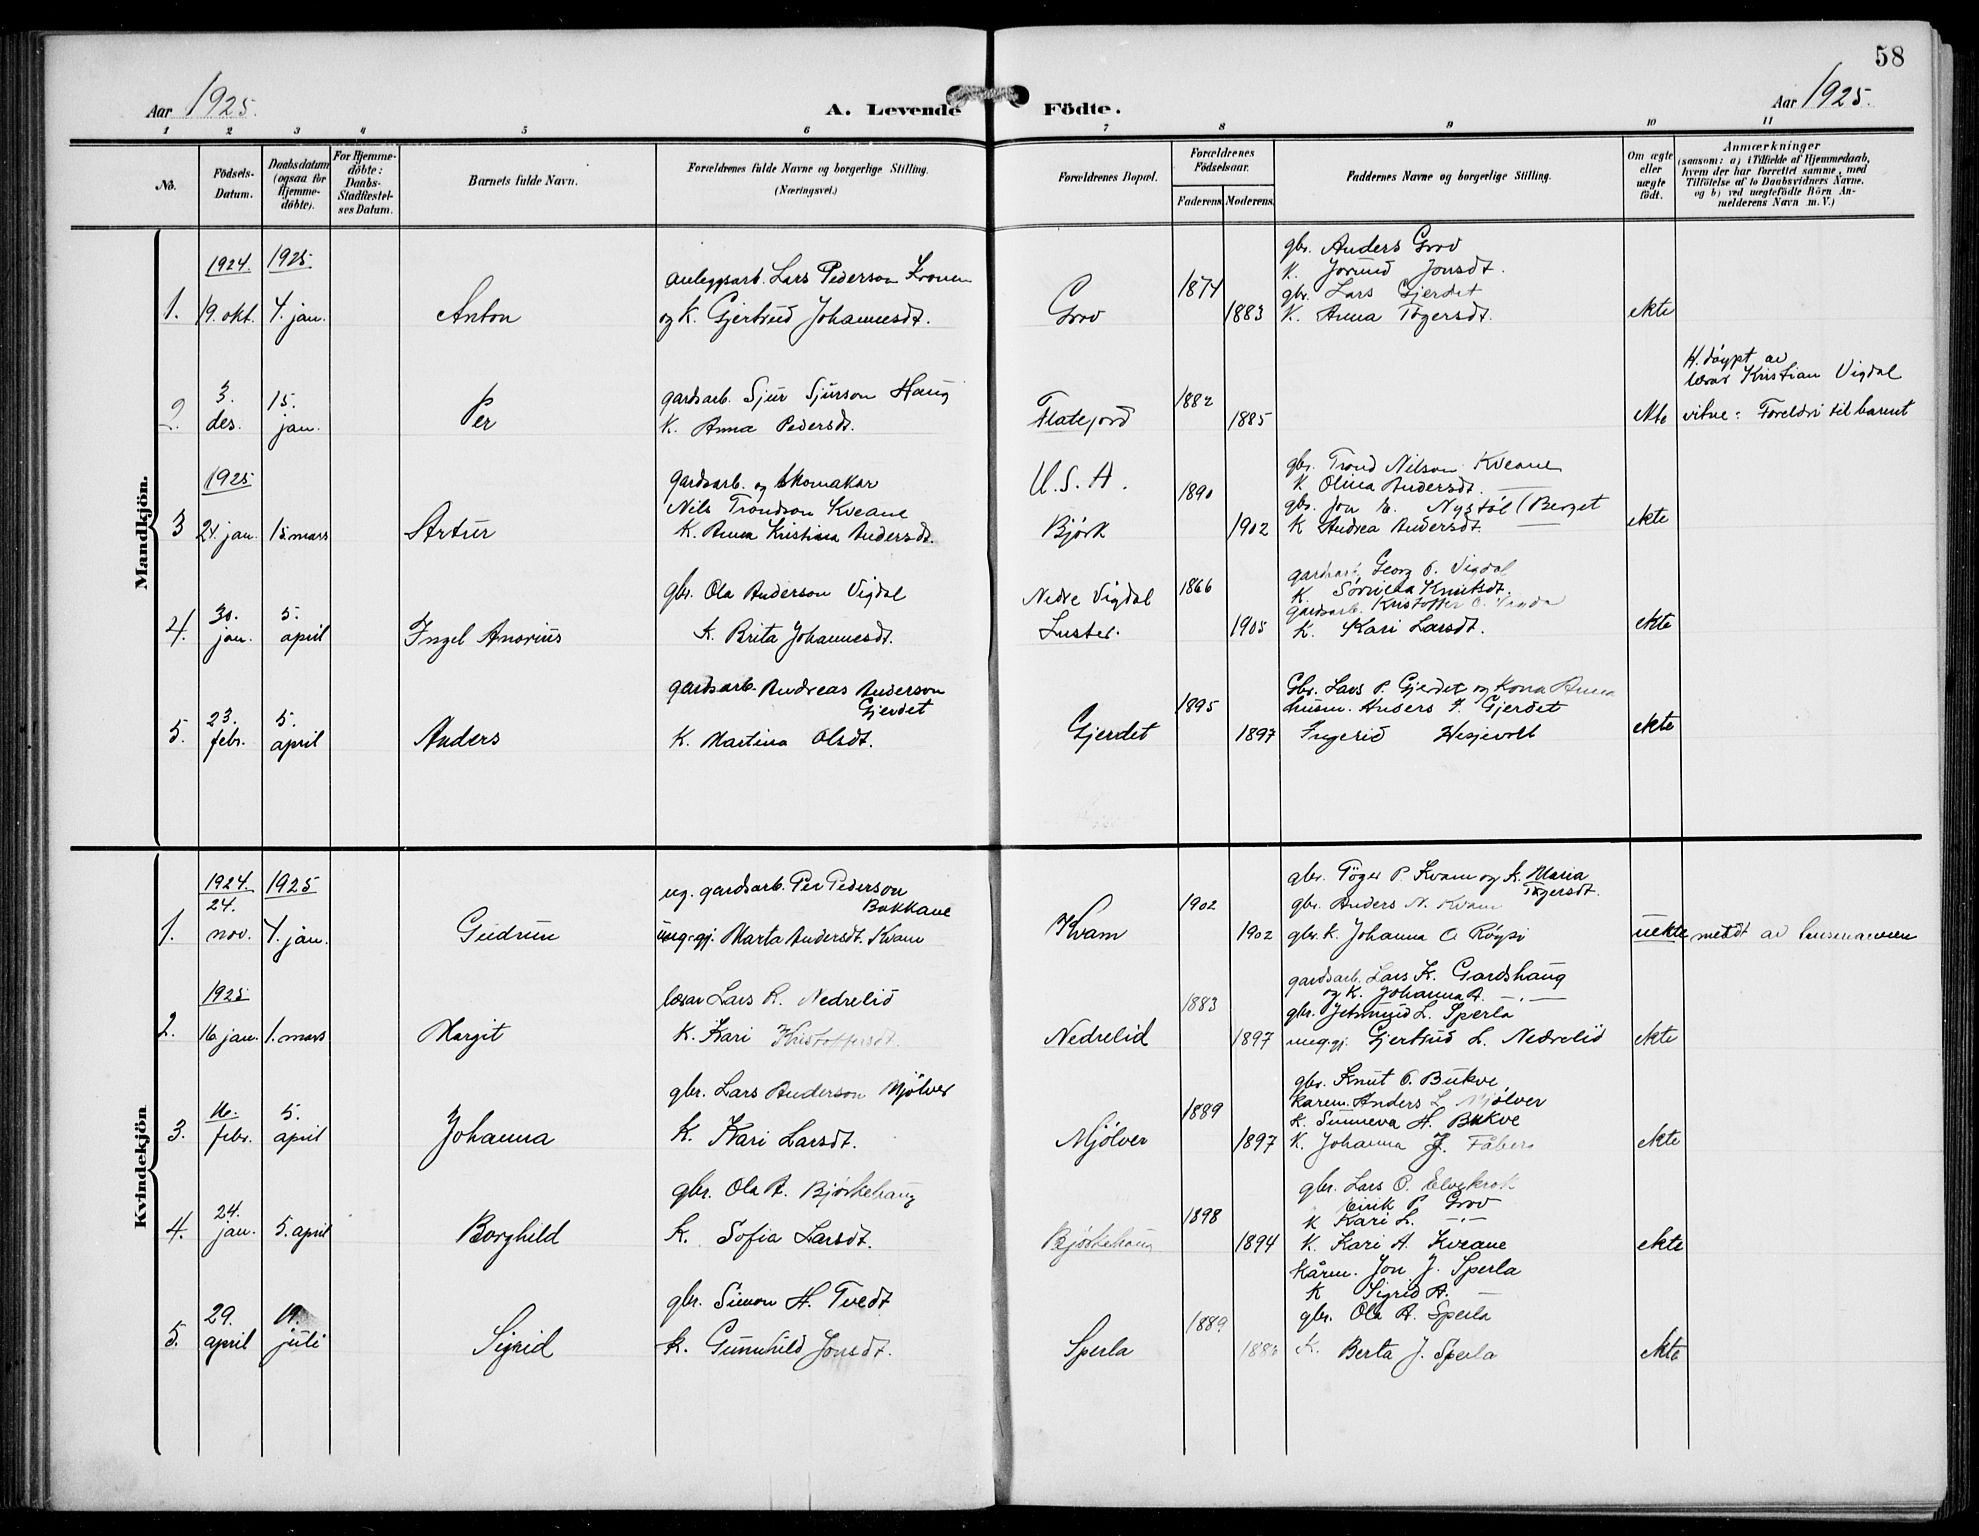 58
Aar 1925.
A. Levende Födte.
Aar 1925.
1 2 3 4 5 6 7 8 9 10 11
No.
Födsels-Datum.
Daabsdatum (ogsaa for Hjemme-döbte).
For Hjemme-döbte: Daabs-Stadfæstel-ses Datum.
Barnets fulde Navn.
Forældrenes fulde Navne og borgerlige Stilling. (Næringsvei.)
Forældrenes Bopæl.
Forældrenes Födselsaar.
Faderens
Moderens.
Faddernes Navne og borgerlige Stilling.
Om ægte eller uægte födt.
Anmærkninger
(saasom: a) i Tilfælde af Hjemmedaab, hvem der har forrettet samme, med Tilföielse af to Daabsvidners Navne, og b) ved uægtefödte Börn An-melderens Navn m. V.)
Mandkjön.
1924. 1925
1. 19. okt. 4. jan. Anton
anleggsarb. Lars Pederson
og K. Gjertrud Johannesdt.
Grov
1874
1883
gbr. Anders Grov
K. Jorund Jonsdt.
gbr. Lars Gjerdet
K. Anna Tøgersdt.
ekte
2. 3. des. 15. jan. Per
gardsarb. Sjur Sjurson Haug
K. Anna Pedersdt.
Flatejord
1882
1885
ekte
H. døypt av
lærar Kristian Vigdal
vitne: Foreldri til barnet
1925
3 24. jan. 15. mars Artur
gardsarb. og skomakar
Nils Trondson Kveane
K. Anna Kristina Andersdt.
U.S.A.
Bjørk
1890
1902
gbr. Trond Nilson Kveane
K Olina Andersdt.
gbr. Jon E. Nystøl (Berget
K Andrea Andersdt.
ekte
4. 30. jan. 5. april Ingel Anorius
gbr. Ola Anderson Vigdal
K. Brita Johannesdt.
Nedre Vigdal
Luster.
1866
1905
gardsarb. Georg O. Vigdal
K. Knutsdt.
gardsarb. Kristoffer O. Vigdal
K. Kari Larsdt.
ekte
5. 23. febr. 5. april Anders
gardsarb. Andreas Anderson
Gjerdet
K. Martina Olsdt.
Gjerdet
1895
1897
Gbr. Lars P. Gjerdet og Kona Anna
husm. Anders Gjerdet
Ingerid
ekte
Kvindekjön
1924. 1925
1. 24. nov. 4. jan. Gudrun
ug. gardsarb. Per Pederson
Bakkane
ung. gj. Marta Andersdt. Kvam
Kvam
1902
1902
gbr. Tøger P. Kvam og K. Maria
Tøgersdt.
gbr. Anders N. Kvam
gbr. K. Johanna O Røysi
uekte
meldt av
1925
2. 16. jan. 1. mars Margit
lærar Lars K. Nedrelid
K. Kari Kristoffersdt.
Nedrelid
1883
1897
gardsarb. Lars K. Gardshaug
og K. Johanna A. —„—
gbr. Jetmund L. Sperla
ung. gj. Gjertrud L. Nedrelid
ekte
3. 16. febr. 5. april Johanna
gbr. Lars Anderson Mjølver
K. Kari Larsdt.
Mjølver
1889
1897
gbr. Knut O. Bukve,
kårm. Anders L Mjølver
K. Sunneva H. Bukve
K. Johanna J. Fåberg
ekte
4. 24. jan. 5. april Borghild
gbr. Ola A. Bjørkehaug
K. Sofia Larsdt.
Bjørkehaug
1898
1894
gbr. Lars O. Elvekrok
Eirik P. Grov
K Kari L. —„—
K. Kari A. Kveane
ekte
5. 29. april 19. juli Sigrid
gbr. Simon H. Tvedt
K. Gunnhild Jonsdt.
Sperla
1889
1886
kårm. Jon J. Sperla
K Sigrid A. —
gbr. Ola A. Sperla
K. Berta J. Sperla
ekte